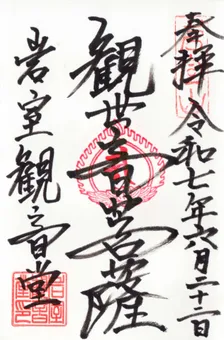 奉拝
令和七年六月二十二日
観世音菩薩
岩室観音堂